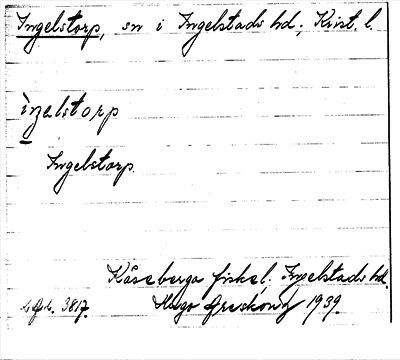 Ingelstorp, sn i Ingelstads hd, Krist. l.
ìŋəlstorp
Ingelstorp.
Kåseberga fiskel. Ingelstads hd.
3817. Hugo Areskoug 1939.